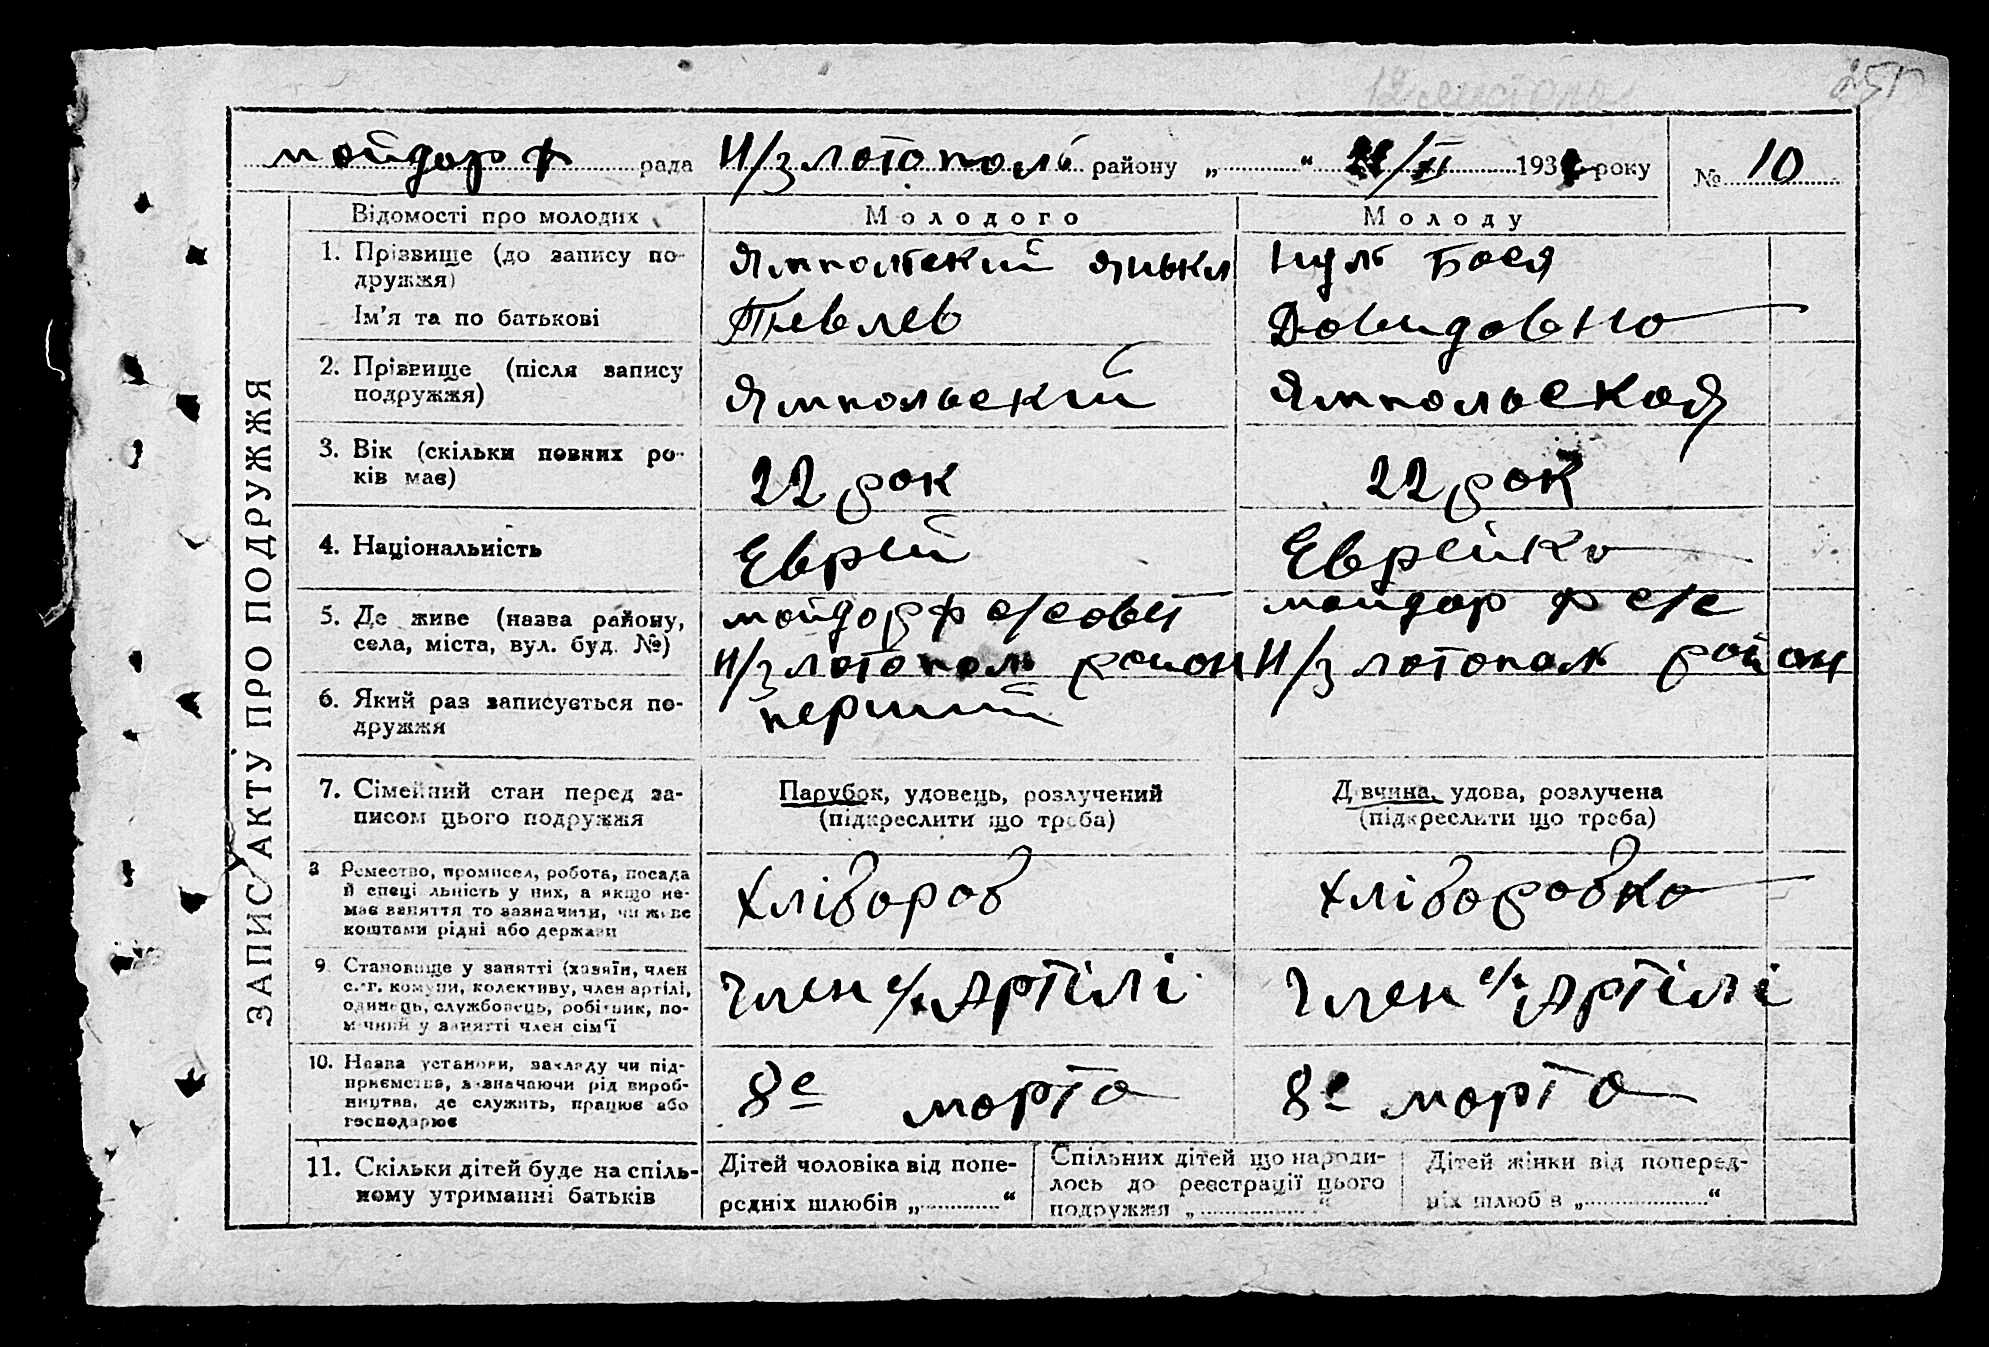 251
майдорф рада Н/златополь району „ “ 21/XI 193 року № 10
ЗАПИС АКТУ ПРО ПОДРУЖЖЯ
Відомості про молодих
Молодого
Молоду
1. Прізвище (до запису по-
дружжя)
Ім'я та по батькові
Ямпольский Янькл
Тевлев
Нуль Бася
Довидовно
2. Прізвище (після запису
подружжя)
Ямпольский
Ямпольская
3. Вік (скільки повних ро-
ків має)
22 рок
22 рок
4. Національність
Еврей
Еврейка
5. Де живе (назва району,
села, міста, вул. буд. №)
майдорф с/совет
Н/златополь район
майдорф с/с
Н/златополь район
6. Який раз записується по-
дружжя
перший
7. Сімейний стан перед за-
писом цього подружжя
Парубок, удовець, розлучений
(підкреслити що треба)
Дівчина, удова, розлучена
(підкреслити що треба)
8 Ремество, промисел, робота, посада
й спеціяльність у них, а якщо не-
має заняття то зазначити, чи живе
коштами рідні або держави
Хлібороб
Хлібаробка
9. Становище у занятті (хазяїн, член
с.-г. комуни, колективу, член артілі,
одинець, службовець, робітник, по-
мічний у занятті член сім'ї
Член с/х Артілі
Член с/х Артілі
10. Назва установи, закладу чи під-
приємства, зазначаючи рід вироб-
ництва, де служить, працює або
господарює
8е марта
8е марта
11. Скільки дітей буде на спіль-
ному утриманні батьків
Дітей чоловіка від попе-
редніх шлюбів „ “
Спільних дітей що народи-
лось до реєстрації цього
подружжя „ “
Дітей жінки від поперед-
ніх шлюбів „ “